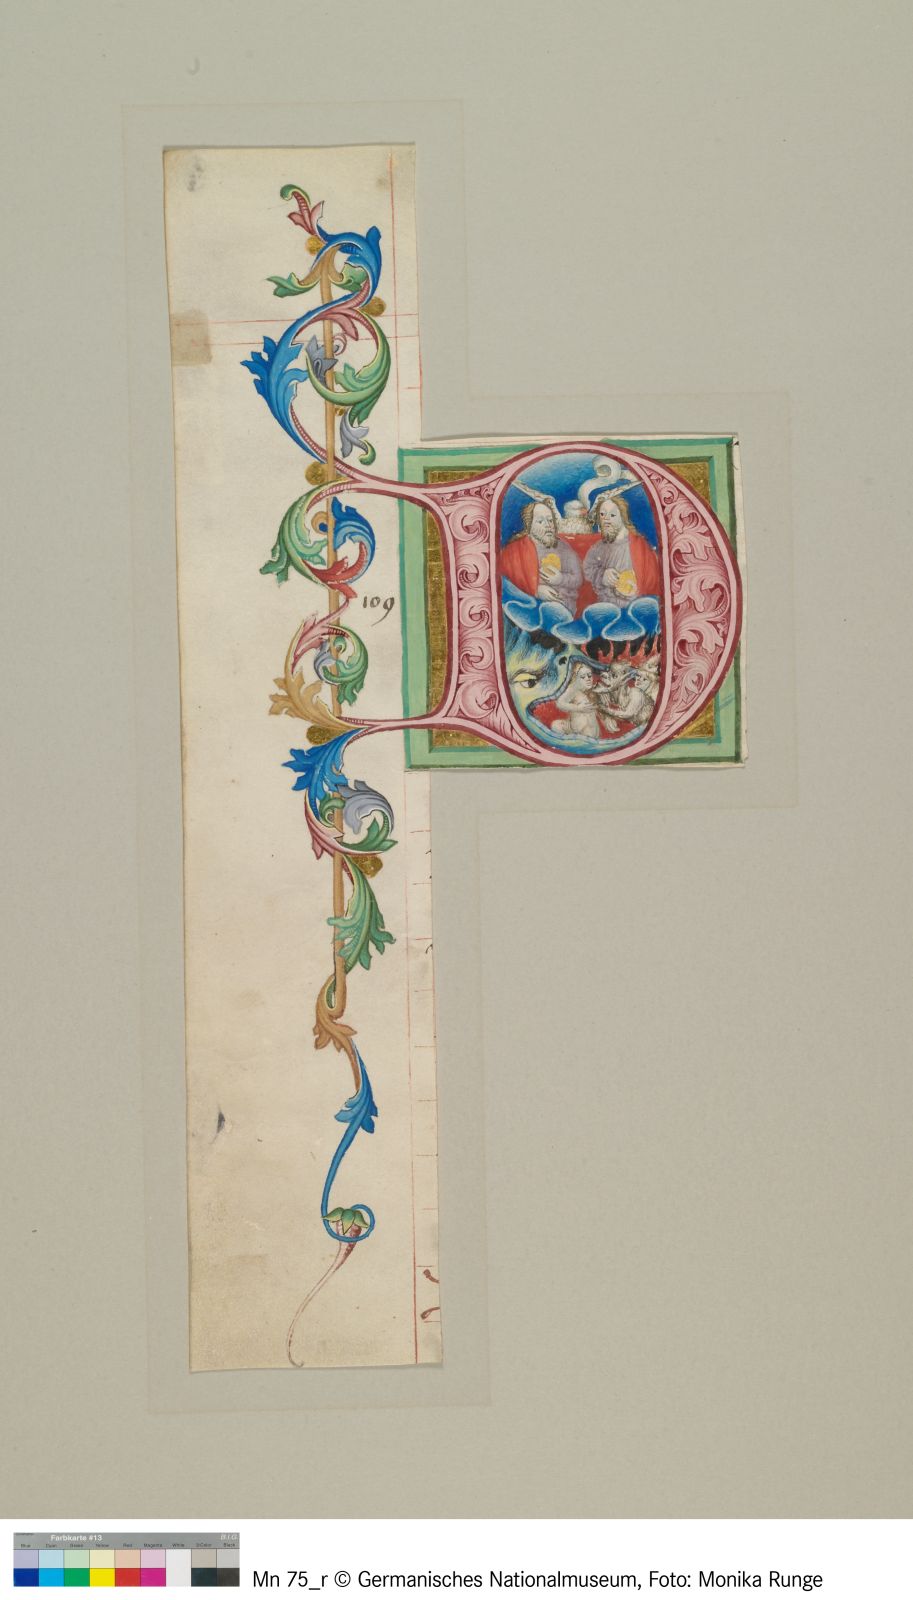 109
D
Farbkarte #13
B.I.G.
Blue Cyan Green Yellow Red Magenta White 3/Color Black
Mn 75_r © Germanisches Nationalmuseum, Foto: Monika Runge